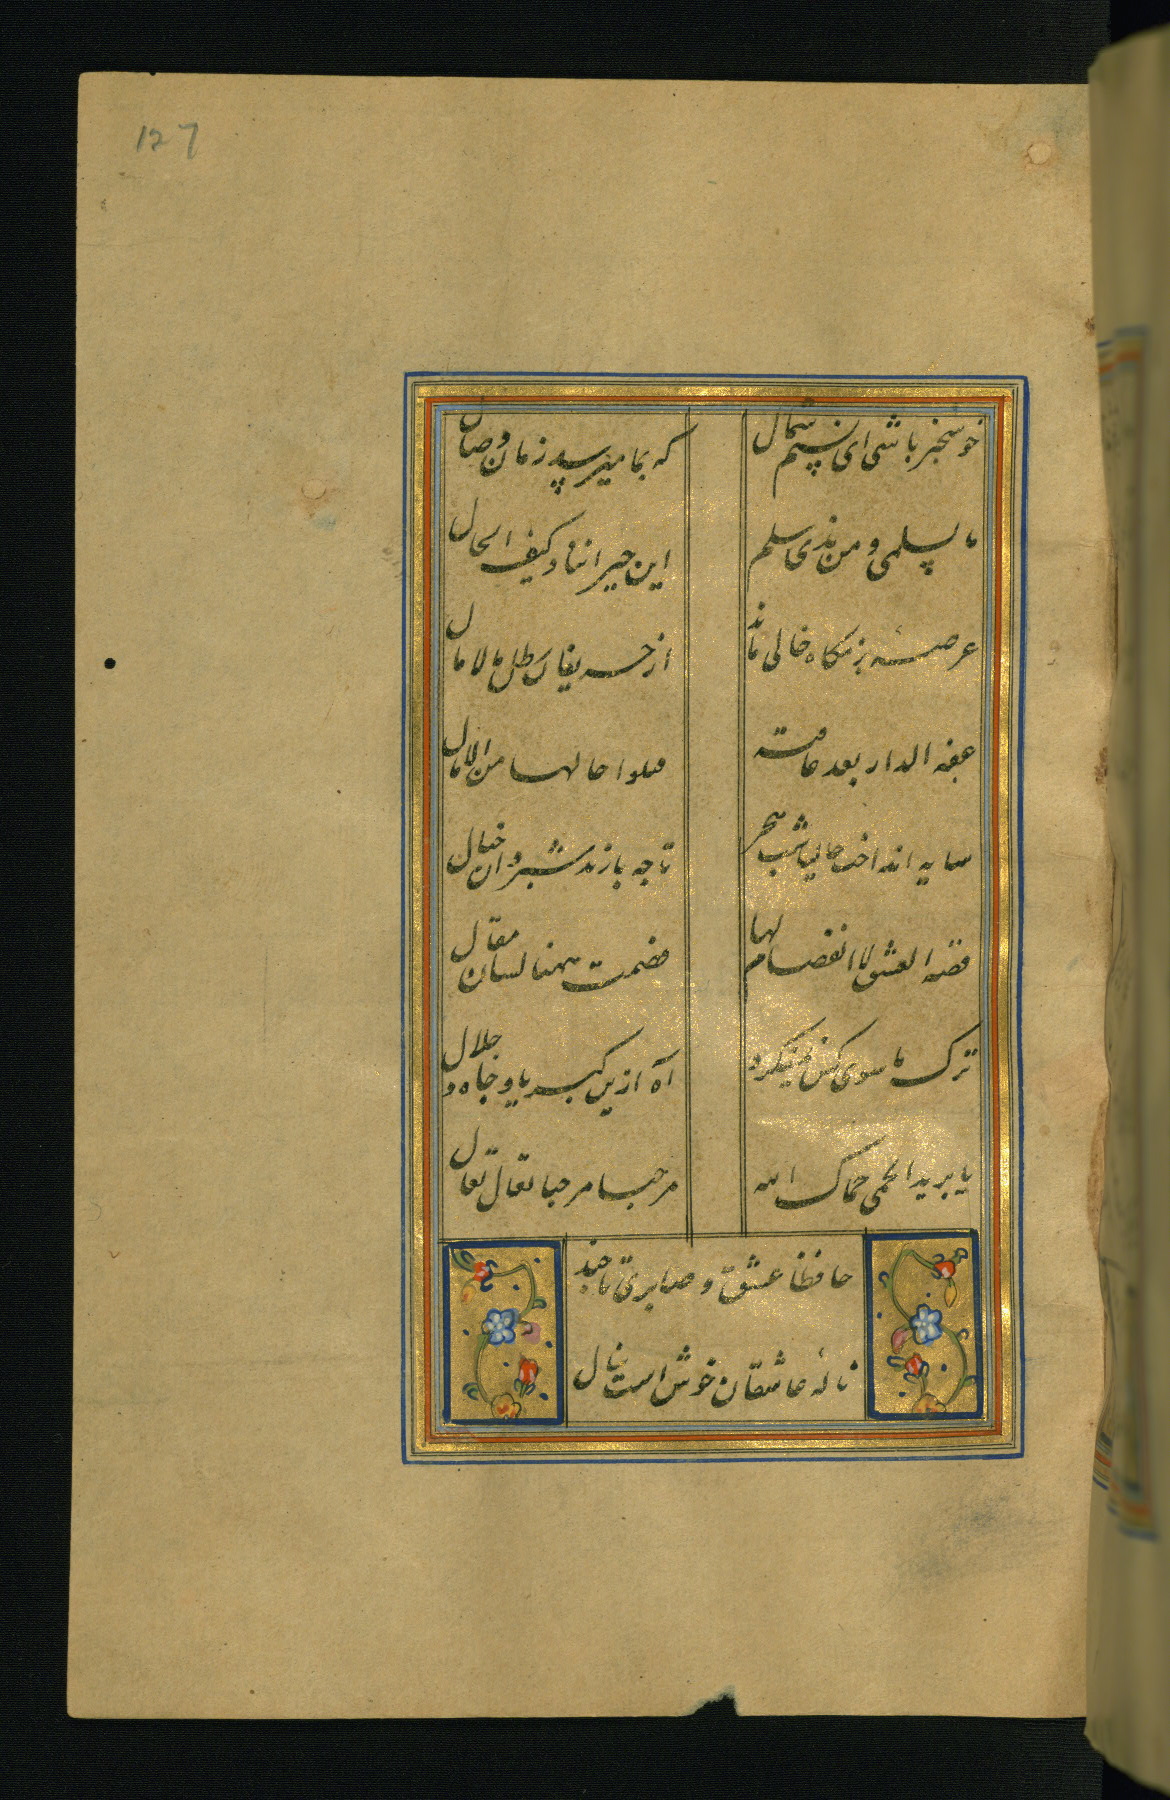 127
خوشخبر باشی ای نسیم شمال
که بما میرسد زمان وصال
ما لسلمی و من بذی سلم
این جیراننا و کیف الحال
عرصهٔ بزمگاه خالی ماند
از حریفان رطل مالامال
عفه الدار بعد عافیه
فسلوا حالها من الامال
سایه انداخت حالیا شب هجر
تا چه بازند شبروان خیال
قصه العشق لا انفصام لها
فصمت ههنا لسان مقال
ترک ما سوی کس نمینگرد
آه ازین کبریا و جاه و جلال
یا برید الحمی حماک الله
مرحبا مرحبا تعال تعال
حافظا عشق و صابری تا چند
نالهٔ عاشقان خوش است بنال